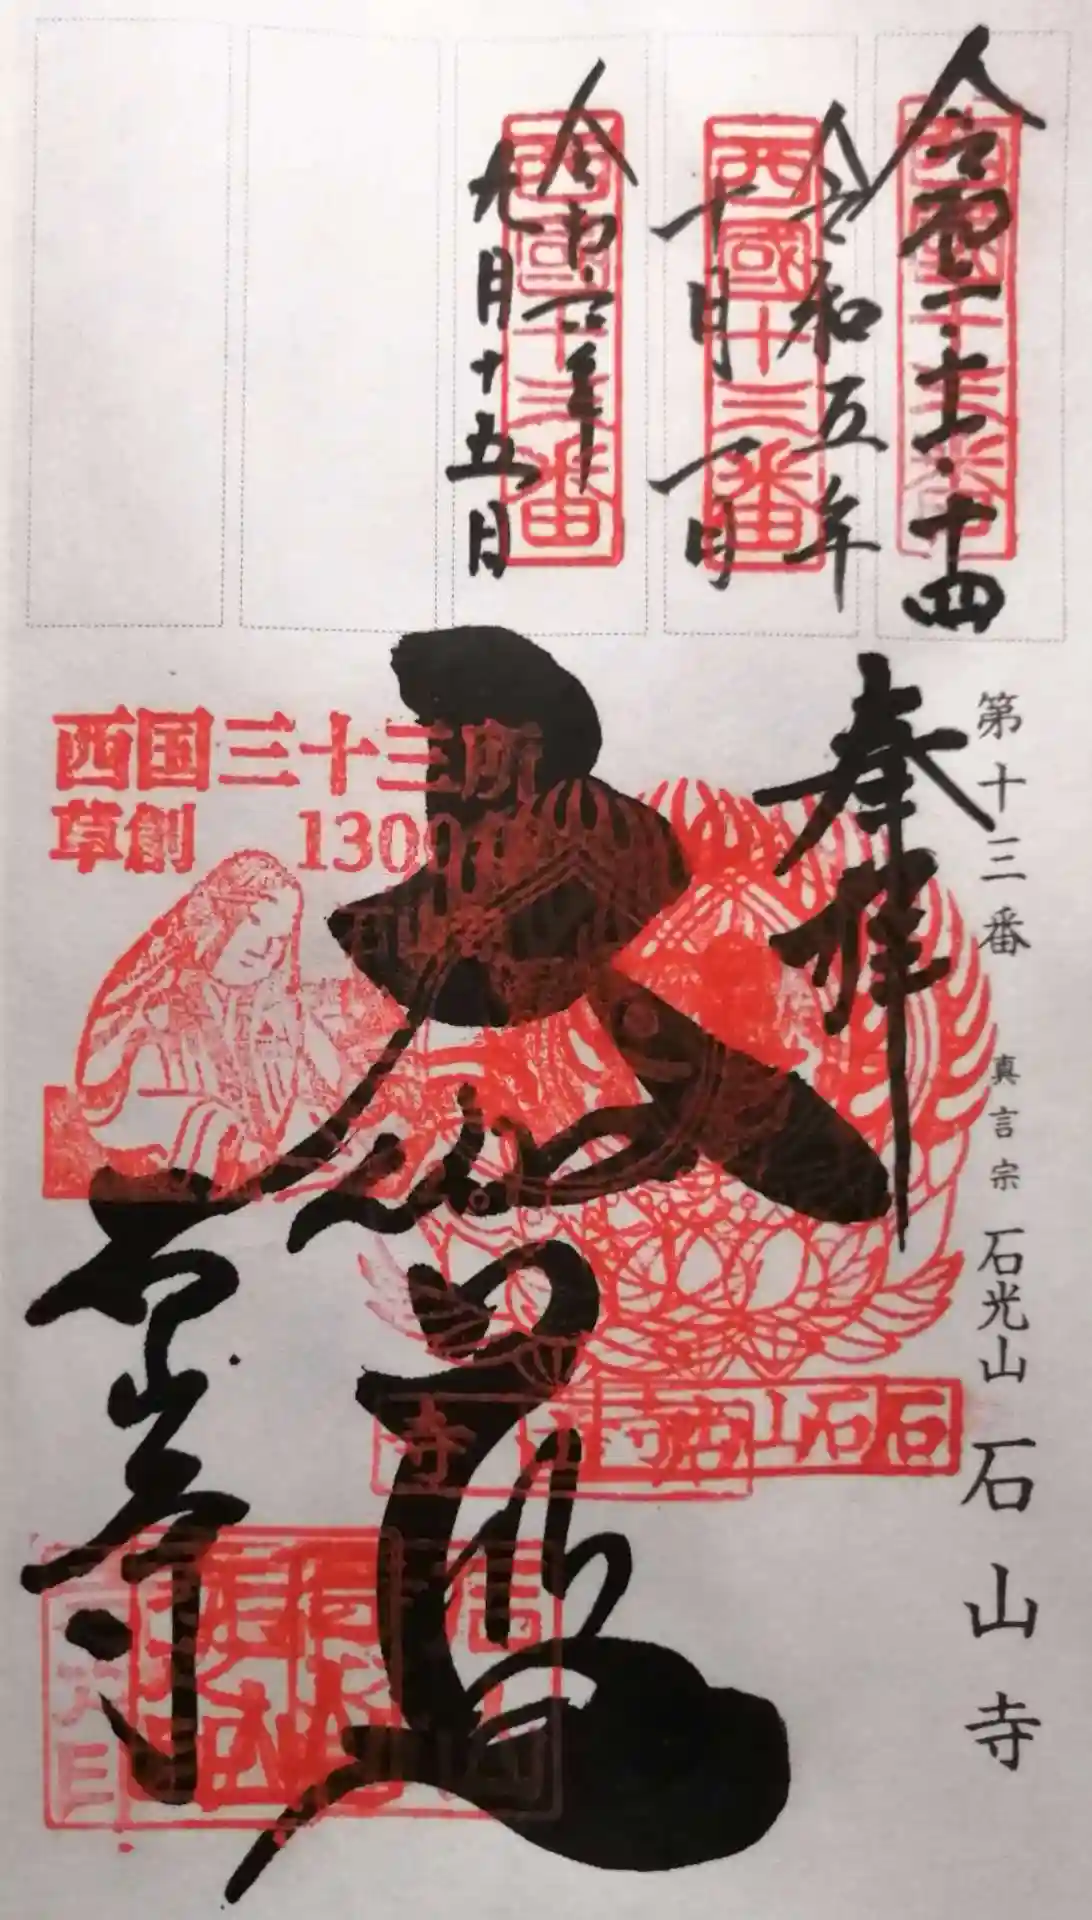 令和二・十一・十四
西國十三番
令和五年
十月一日
西國十三番
令和六年
九月十五日
西國十三番
第十三番 真言宗 石光山 石山寺
奉拝
大伽藍
石山寺
西国三十三所
草創 1300
石山寺
石山寺